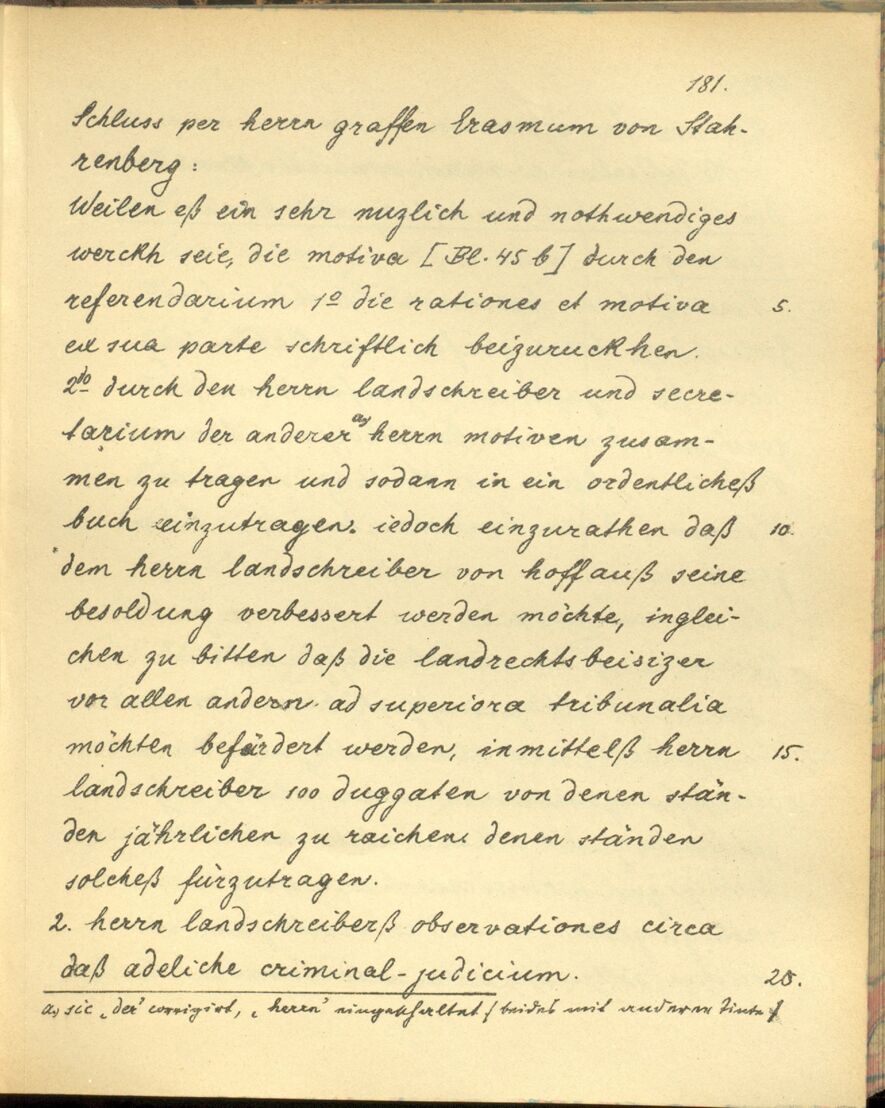 181.
Schluss per herrn graffen Erasmum von Stah-
renberg:
Weilen eß ein sehr nuzlich und nothwendiges
werckh seie, die motiva [Bl. 45 b] durch den
referendarium 1º die rationes et motiva 5.
ex sua parte schriftlich beizuruckhen.
2do durch den herrn landschreiber und secre-
tarium der anderer a) herrn motiven zusam-
men zu tragen und sodann in ein ordentlicheß
buch einzutragen. iedoch einzurathen daß 10.
dem herrn landschreiber von hoff auß seine
besoldung verbessert werden möchte, inglei-
chen zu bitten daß die landrechtsbeisizer
vor allen andern ad superiora tribunalia
möchten befärdert werden, inmittelß herrn 15.
landschreiber 100 duggaten von denen stän-
den jährlichen zu raichen. denen ständen
solcheß fürzutragen.
2. herrn landschreiberß observationes circa
daß adeliche criminal-judicium. 20.
a) sic „der" corrigirt, „herrn" eingeschaltet (beides mit anderer Tinte)